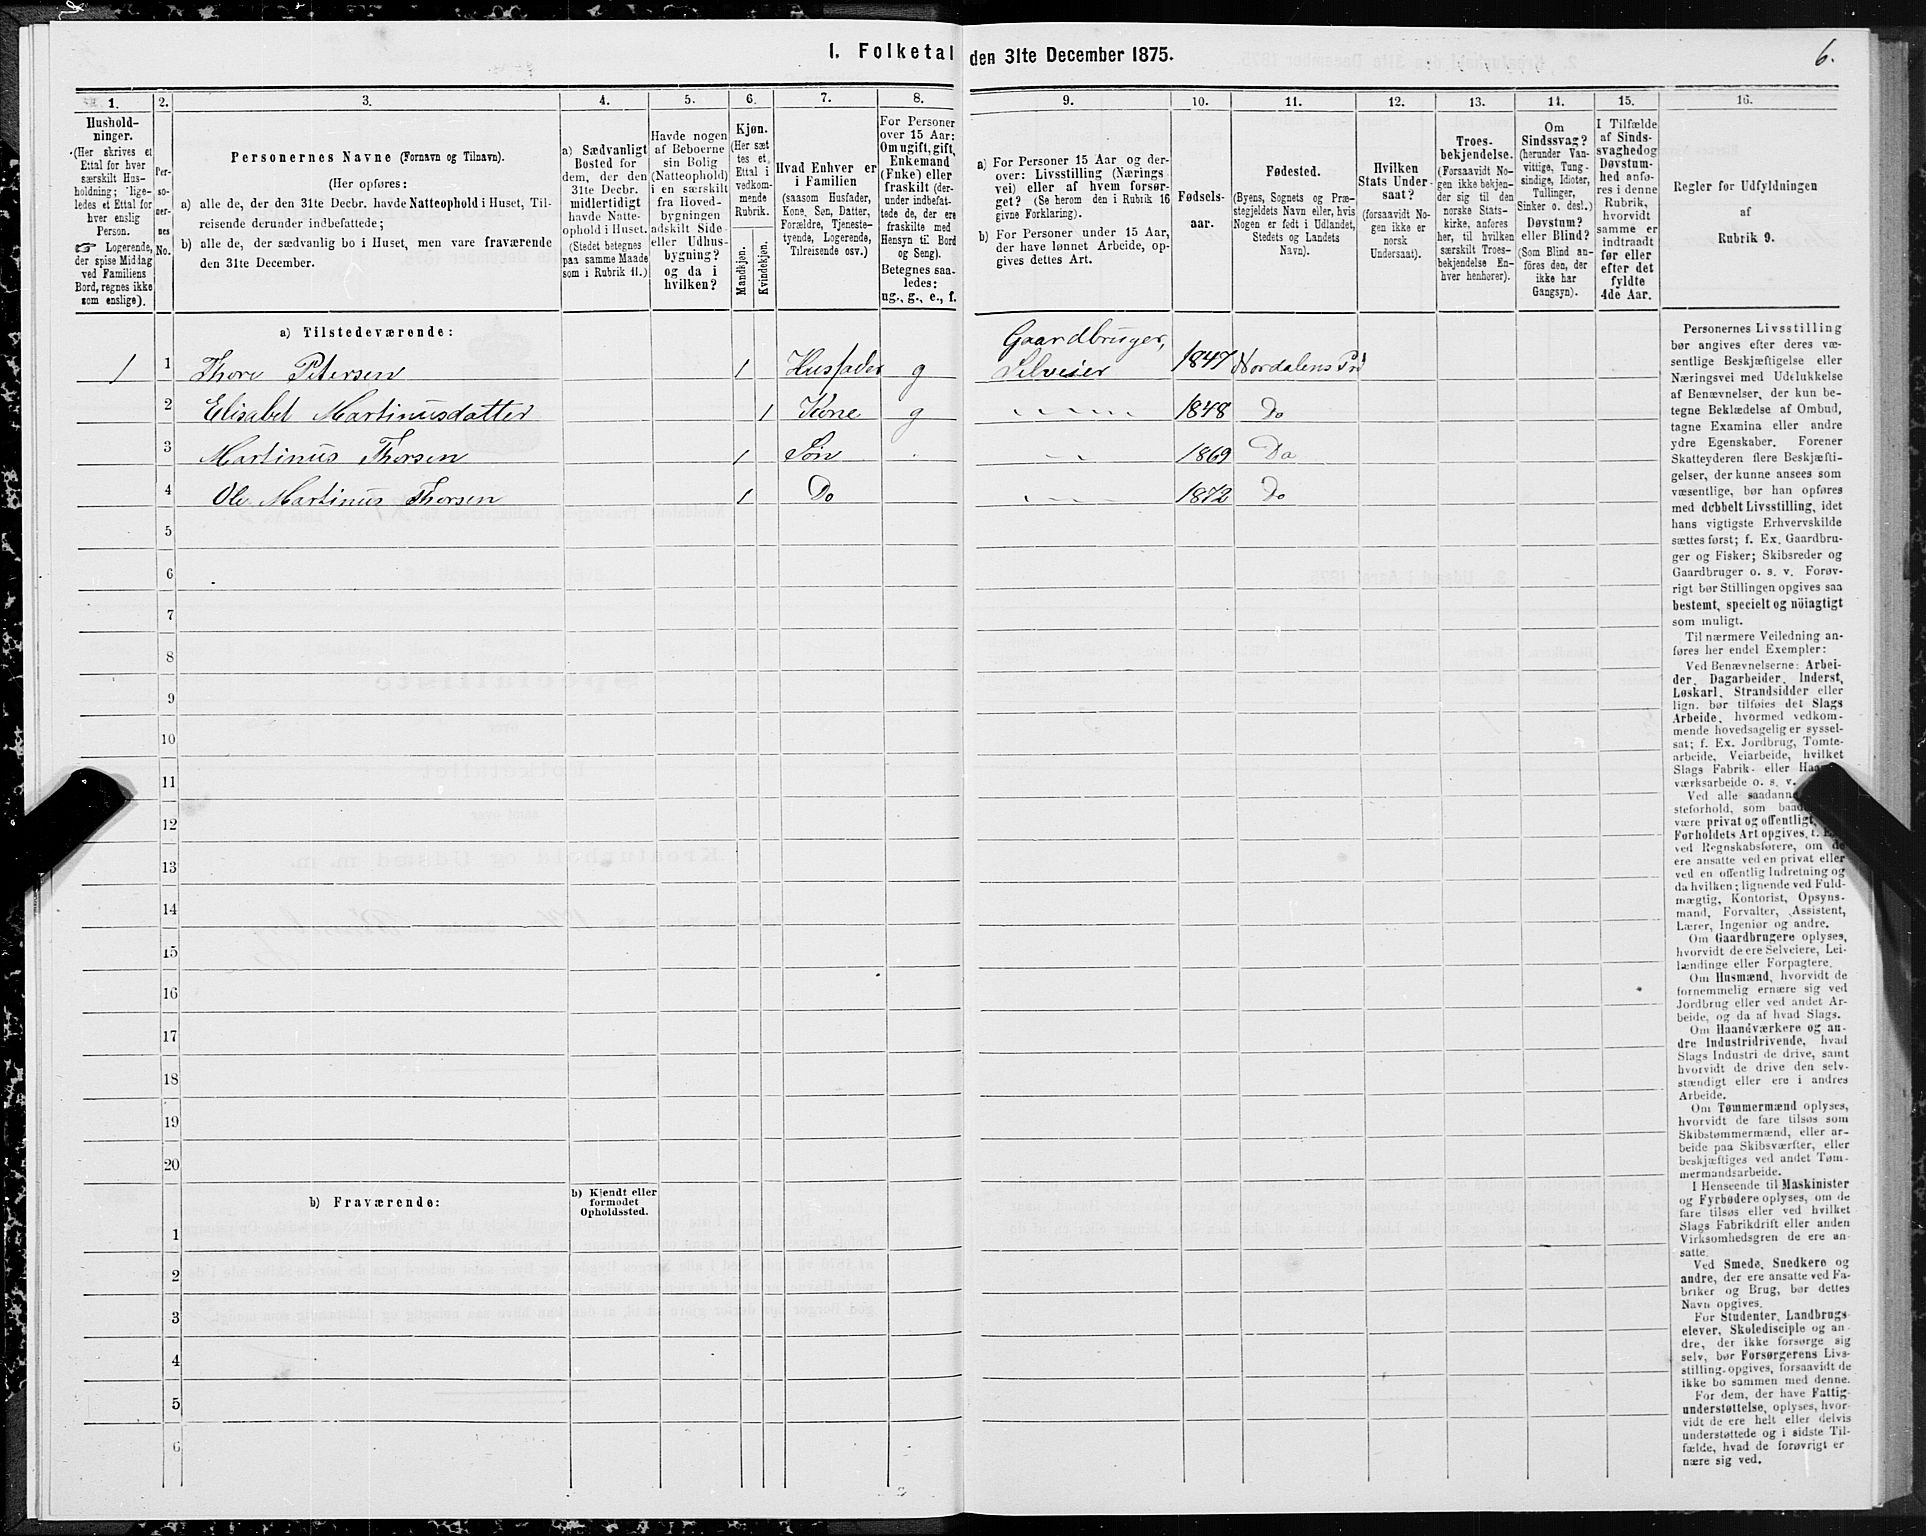 1. Folketal den 31te December 1875.
6.
1.
2.
3.
4.
5.
6.
7.
8.
9.
10.
11.
12.
13.
14.
15.
16.
Hushold-
ninger.
(Her skrives et
Ettal for hver
særskilt Hus-
holdning; lige-
ledes et Ettal for
hver enslig
Person.
☞ Logerende,
der spise Middag
ved Familiens
Bord, regnes ikke
som enslige).
Per-
so-
ner-
nes
No.
Personernes Navne (Fornavn og Tilnavn).
(Her opføres:
a) alle de, der den 31te Decbr. havde Natteophold i Huset, Til-
reisende derunder indbefattede;
b) alle de, der sædvanlig bo i Huset, men vare fraværende
den 31te December.
a) Sædvanligt
Bosted for
dem, der den
31te Decbr.
midlertidigt
havde Natte-
ophold i Huset.
(Stedet betegnes
paa samme Maade
som i Rubrik 11.)
Havde nogen
af Beboerne
sin Bolig
(Natteophold)
i en særskilt
fra Hoved-
bygningen
adskilt Side-
eller Udhus-
bygning?
og da i
hvilken?
Kjøn.
(Her sæt
tes et
Ettal i
vedkom-
mende
Rubrik.
Mandkjøn.
Kvindekjøn.
Hvad Enhver er
i Familien
(saasom Husfader,
Kone, Søn, Datter,
Forældre, Tjeneste-
tyende, Logerende,
Tilreisende osv.)
For Personer
over 15 Aar:
Om ugift, gift,
Enkemand
(Enke) eller
fraskilt (der-
under indbefat-
tede de, der ere
fraskilte med
Hensyn til Bord
og Seng).
Betegnes saa-
ledes:
ug., g., e., f.
a) For Personer 15 Aar og der-
over: Livsstilling (Nærings
vei) eller af hvem forsør-
get? (Se herom den i Rubrik 16
givne Forklaring).
b) For Personer under 15 Aar,
der have lønnet Arbeide, op-
gives dettes Art.
Fødsels-
aar.
Fødested.
(Byens, Sognets og Præ-
stegjeldets Navn eller, hvis
Nogen er født i Udlandet,
Stedets og Landets
Navn).
Hvilken
Stats Under-
saat?
(forsaavidt No-
gen ikke er
norsk
Undersaat).
Troes-
bekjendelse.
(Forsaavidt No-
gen ikke bekjen-
der sig til den
norske Stats-
kirke, anføres
her, til hvilken
særskilt Troes-
bekjendelse En-
hver henhører).
Om
Sindssvag?
(herunder Van-
vittige, Tung-
sindige, Idioter,
Tullinger,
Sinker o. desl.)
Døvstum?
eller Blind?
(Som Blind an-
føres den, der
ikke har
Gangsyn).
I Tilfælde
af Sinds-
svaghed og
Døvstum-
hed anfø-
res i denne
Rubrik,
hvorvidt
samme er
indtraadt
før eller
efter det
fyldte
4de Aar.
Regler for Udfyldningen
af
Rubrik 9.
a) Tilstedeværende:
1 1 Thore Petersen 1 Husfader g Gaardbruger, Selveier 1847 Nordalens Prd
2 Elisabet Martinusdatter 1 Kone g 1848 Do
3 Martinus Thorsen 1 Søn 1869 Do
4 Ole Martinus Thorsen 1 Do 1872 Do
5
6
7
8
9
10
11
12
13
14
15
16
17
18
19
20
b) Fraværende:
b) Kjendt eller
formodet
Opholdssted.
1
2
3
4
5
6
Personernes Livsstilling
bør angives efter deres væ-
sentlige Beskjæftigelse eller
Næringsvei med Udelukkelse
af Benævnelser, der kun be-
tegne Beklædelse af Ombud,
tagne Examina eller andre
ydre Egenskaber. Forener
Skatteyderen flere Beskjæfti-
gelser, der kunne ansees som
væsentlige, bør han opføres
med dobbelt Livsstilling, idet
hans vigtigste Erhvervskilde
sættes først; f. Ex. Gaardbru-
ger og Fisker; Skibsreder og
Gaardbruger o. s. v. Forøv-
rigt bør Stillingen opgives saa
bestemt, specielt og nöiagtigt
som muligt.
Til nærmere Veiledning an-
føres her endel Exempler:
Ved Benævnelserne: Arbei-
der, Dagarbeider, Inderst,
Løskarl, Strandsidder eller
lign. bør tilføies det Slags
Arbeide, hvormed vedkom-
mende hovedsagelig er syssel-
sat; f. Ex. Jordbrug, Tomte-
arbeide, Veiarbeide, hvilket
Slags Fabrik- eller
værksarbeide o. s. v.
Ved alle
steforhold, som
være privat og offentligt,
Forholdets Art opgives,
ved Regnskabsførere, om de
ere ansatte ved en privat eller
ved en offentlig Indretning og
da hvilken; lignende ved Fuld-
mægtig, Kontorist, Opsyns-
mand, Forvalter, Assistent,
Lærer, Ingeniør og andre.
Om Gaardbrugere oplyses,
hvorvidt de ere Selveiere, Lei-
lændinge eller Forpagtere.
Om Husmænd, hvorvidt de
fornemmelig ernære sig ved
Jordbrug eller ved andet Ar-
beide, og da af hvad Slags.
Om Haandværkere og an-
dre Industridrivende, hvad
Slags Industri de drive, samt
hvorvidt de drive den selv-
stændigt eller ere i andres
Arbeide.
Om Tømmermænd oplyses,
hvorvidt de fare tilsøs som
Skibstømmermænd, eller ar-
beide paa Skibsværfter, eller
beskjæftiges ved andet Tøm-
mermandsarbeide.
I Henseende til Maskinister
og Fyrbødere oplyses, om de
fare tilsøs eller ved hvilket
Slags Fabrikdrift eller anden
Virksomhedsgren de ere an-
satte.
Ved Smede, Snedkere og
andre, der ere ansatte ved Fa-
briker og Brug, bør dettes
Navn opgives.
For Studenter, Landbrugs-
elever, Skoledisciple og an-
dre, der ikke forsørge sig
selv, bør Forsørgerens Livs-
stilling opgives, forsaavidt de
ikke bo sammen med denne.
For dem, der have Fattig-
understøttelse, oplyses, hvor-
vidt de ere helt eller delvis
understøttede og i sidste Til-
fælde, hvad de forøvrigt er
nære sig ved.